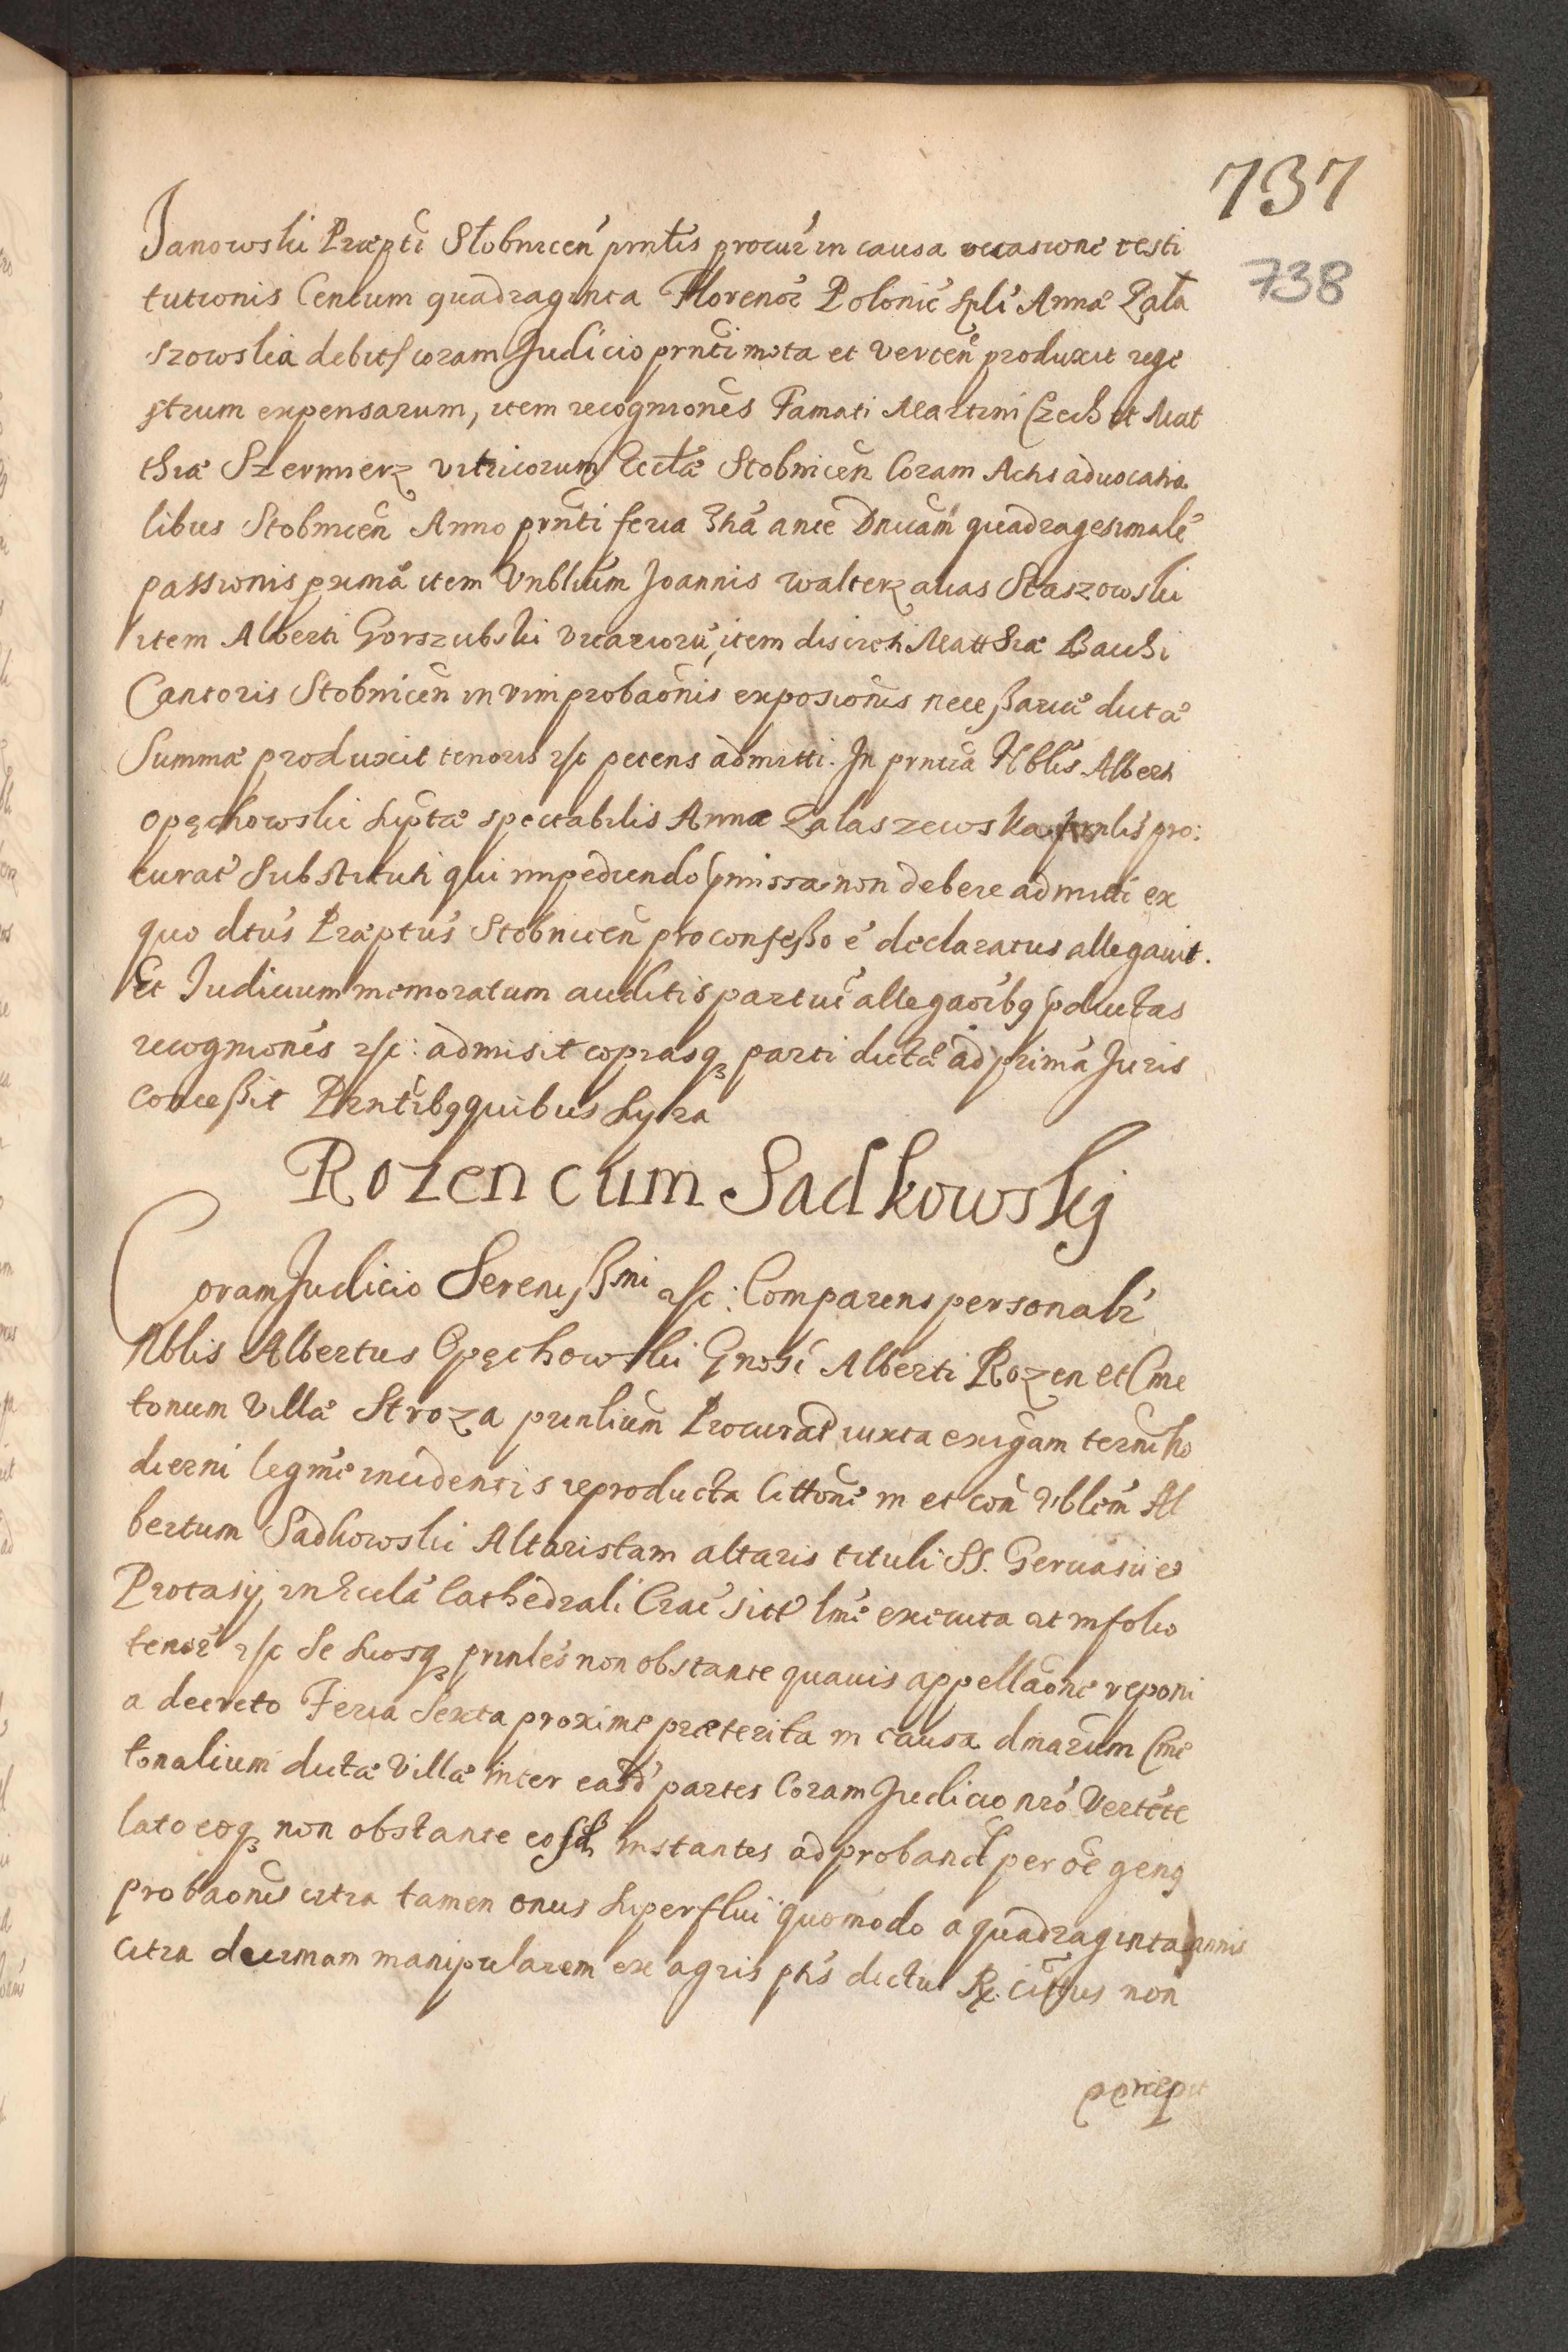 737
738
Janowski Præpti Stobnicen̄ prntis procur in causa occasione resti
tutionis Centum quadraginta Florenor Polonic spli Annæ Zała
szowska debit coram Judicio prnti mota et verten̄ produxit rege
strum expensarum, item recogniones Famati Martini Czech et Mat
thiæ Szermierz vitricorum Ecclæ Stobnicen̄ Coram Actis advocatia
libus Stobnicen̄ Anno prnti feria 3tiā ante Dnicam quadragesimale
passionis primā item Vnblium Joannis Walterz alias Staszowski
item Alberti Gorszubski vicariorū, item discreti Matthiæ Bauchi
Cantoris Stobnicen̄ in vim probaonis exposionis neceßariæ dictæ
Summæ produxit tenoris etc petens admitti. In prntia Nblis Alberti
Opęchowski suptæ spectabilis Annæ Zalaszewska prnlis pro:
curat substituti qui impediendo pmissa non debere admitti ex
quo dtus Præptus Stobnicen̄ pro confeßo ē declaratus allegauit.
Et Judicium memoratum auditis partiū allegaoibq pductas
recogniones etc: admisit copiasq parti dictæ ad primā Juris
conceßit Prntibq quibus supra
Rozen cum Sadkowskj
Coram Judicio Sereniß̄mi etc: Comparens personalr
Nblis Albertus Opęchowski Gnosi Alberti Rozen et Cme
tonum Villæ Stroza prnlium Procurat iuxta exigam termi ho
dierni legme incidentis reproducta Cittone in et con Vblem Al
bertum Sadkowski Altaristam altaris tituli SS. Geruasii et
Protasij in Ecclā Cathedrali Crac sitt lme executa et in folio
tenor etc se suosq prnles non obstante quauis appellaone reponi
a decreto Feria Sexta proxime præterita in causa dmarum Cme
tonalium dictæ Villæ inter easd partes Coram Judicio nro Vertēte
lato eoq non obstante eosd instantes ad proband per oē genq
probaonis citra tamen onus superflui quomodo a quadraginta annis
citra decimam manipularem ex agris pttis dictus R. Cittus non
percipit